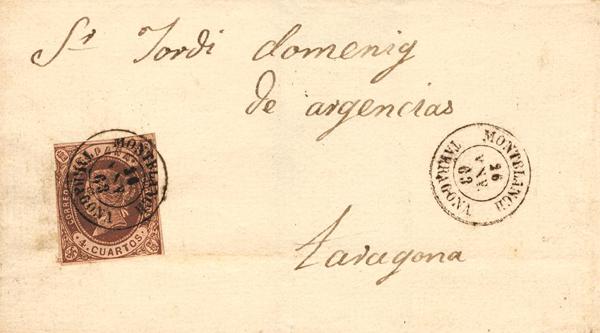 Sr Jordi domenig
de argencias
taragona
CORREOS
4 CUARTOS
MONTBLANCH
TARRAGONA
MONTBLANCH
16
ENE
63
TARRAGONA